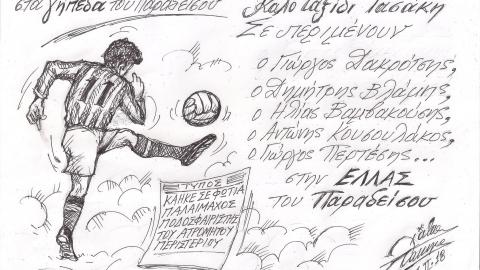 στα γήπεδα του Παραδείσου
Καλό ταξίδι Τασάκη
Σε περιμένουν
ο Γιώργος Δακρότσης,
ο Δημήτρης Βλάμης,
ο Ηλίας Βαμβακούσης,
ο Αντώνης Κουσουλάκος,
ο Γιώργος Περτέσης...
στην ΕΛΛΑΣ
του Παραδείσου
11
ΤΥΠΟΣ
ΚΑΗΚΕ ΣΕ ΦΩΤΙΑ
ΠΑΛΑΙΜΑΧΟΣ
ΠΟΔΟΣΦΑΙΡΙΣΤΗΣ
ΤΟΥ ΑΤΡΟΜΗΤΟΥ
ΠΕΡΙΣΤΕΡΙΟΥ